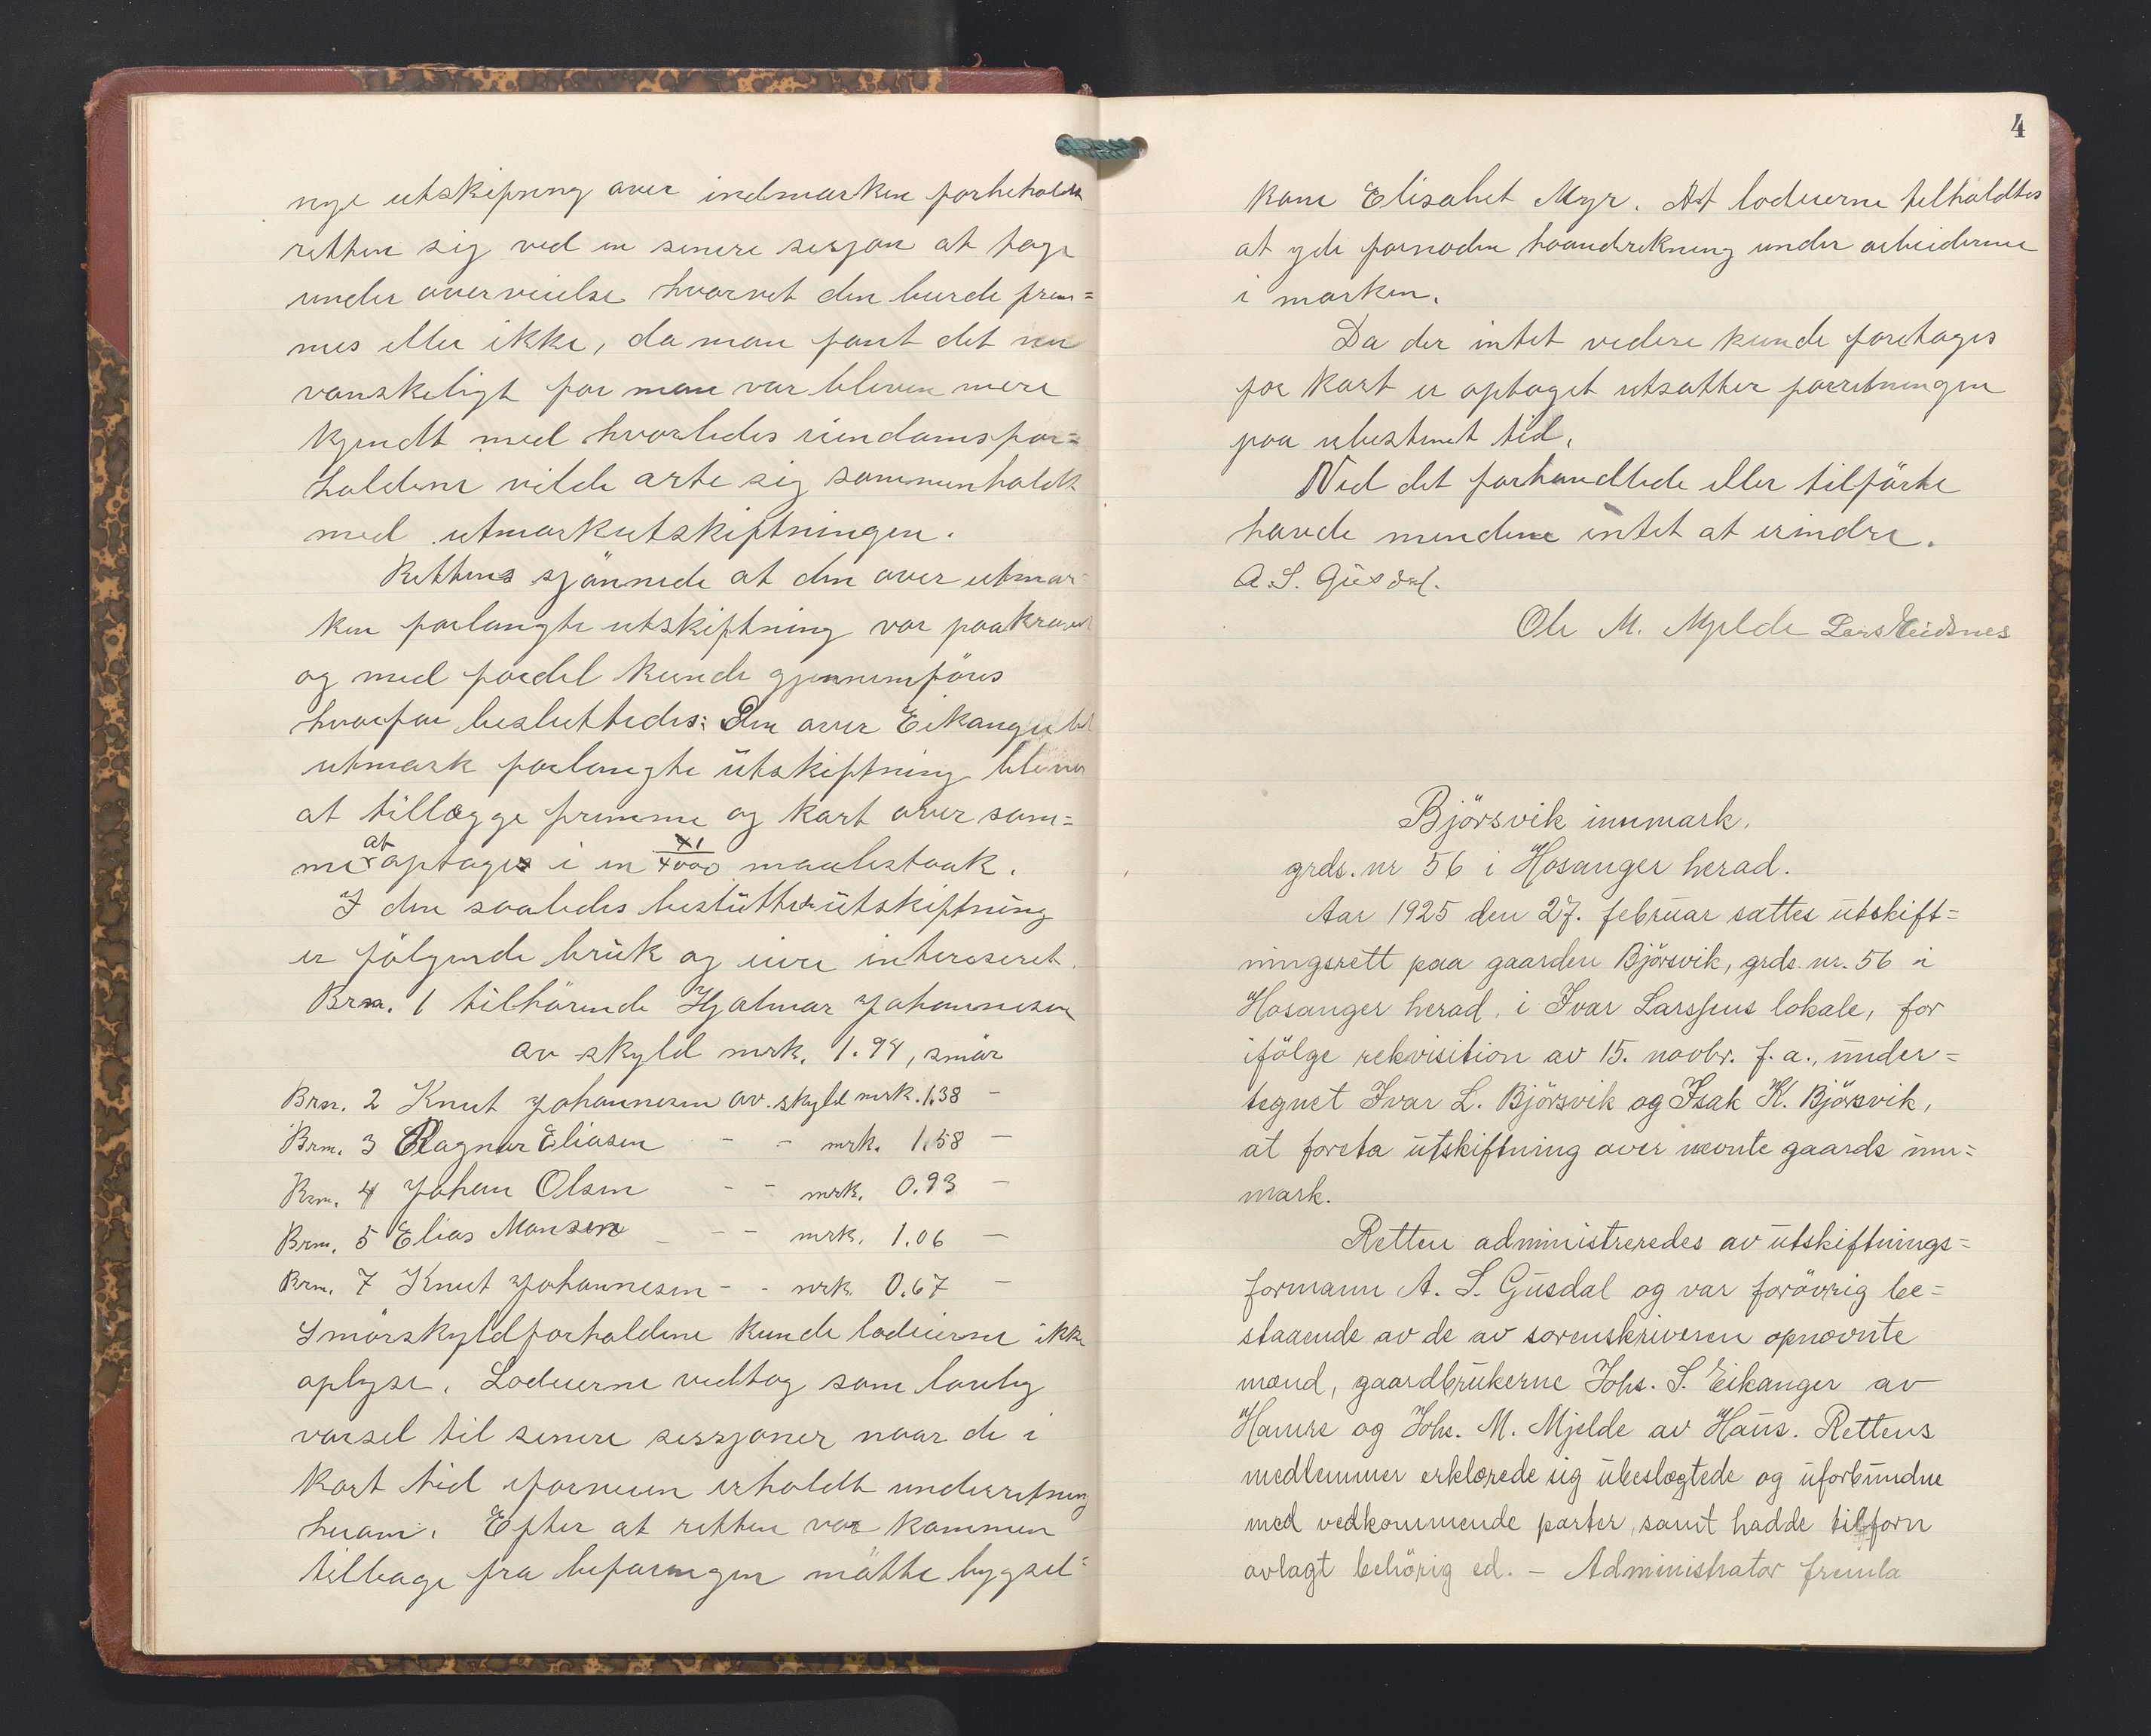 nye utskiftning over indmarken forbeholdt
retten sig ved en senere sesjon at tage
under overveielse hvorvet den burde frem=
mes eller ikke, da man fant det
vanskeligt før man var bleven mere
kjendt med hvorledes eiendomsfor=
holdene vilde arte sig sammenholdt
med utmarkutskiftningen.
Rettens sjönnede at den over utmar
ken forlangte utskiftning var paakrævet
og med fordel kunde gjennemföres
hvorfor besluttedes: Den over Eikanger
utmark forlangte utskiftning bliver
at tillægge fremme og kart over sam=
me at optages i en 1/4000 maalestaak.
I den saaledes besluttede utskiftning
er fölgende bruk og eiere intereseret.
Brn. 1 tilhörende Hjalmar Johannesen
av skyld mrk. 1.94, smör
Brn. 2 Knut Johannesen av skyld mrk. 1.38 -
Brn. 3 Ragnar Eliasen - - mrk. 1.58 -
Brn. 4 Johan Olsen - - mrk. 0.93 -
Brn. 5 Elias Monsen - - - mrk. 1.06 -
Brn. 7 Knut Johannesen - - mrk. 0.67 -
Smörskyldforholdene kunde lodeierne ikke
oplyse. Lodeierne vedtog som lovlig
varsel til senere sessjoner naar de i
kort tid iforveien erholdt underretning
herom. Efter at retten var kommen
tilbage fra befaringen mötte bygsel=
4
kone Elisabet Myr. At lodeierne tilholdtes
at yde fornoden haandrekning under arbeiderne
i marken.
Da der intet videre kunde foretages
for kart er optaget utsatter forretningen
paa ubestemt tid.
Ved det forhandlede eller tilförte
havde mendene intet at erindre.
A. S. Gusdal.
Ole M. Mjelde Lars Eidsnes
Björsvik innmark.
grds. nr 56 i Hosanger herad.
Aar 1925 den 27. februar sattes utskift=
ningsrett paa gaarden Björsvik, grds. nr. 56 i
Hosanger herad. i Ivar Larssens lokale, for
ifölge rekvisition av 15. novbr. f. a., under=
tegnet Ivar L. Björsvik og Isak K. Björsvik,
at foreta utskiftning over nevnte gaards inn=
mark.
Retten administreredes av utskiftnings=
formann A. S. Gusdal og var forövrig be=
staaende av de av sorenskriveren opnævnte
mænd, gaardbrukerne Johs. S. Eikanger av
Hamre og Johs. M. Mjelde av Haus. Rettens
medlemmer erklærede sig ubeslægtede og uforbundne
med vedkommende parter, samt hadde tilforn
avlagt behörig ed. - Administrator fremla